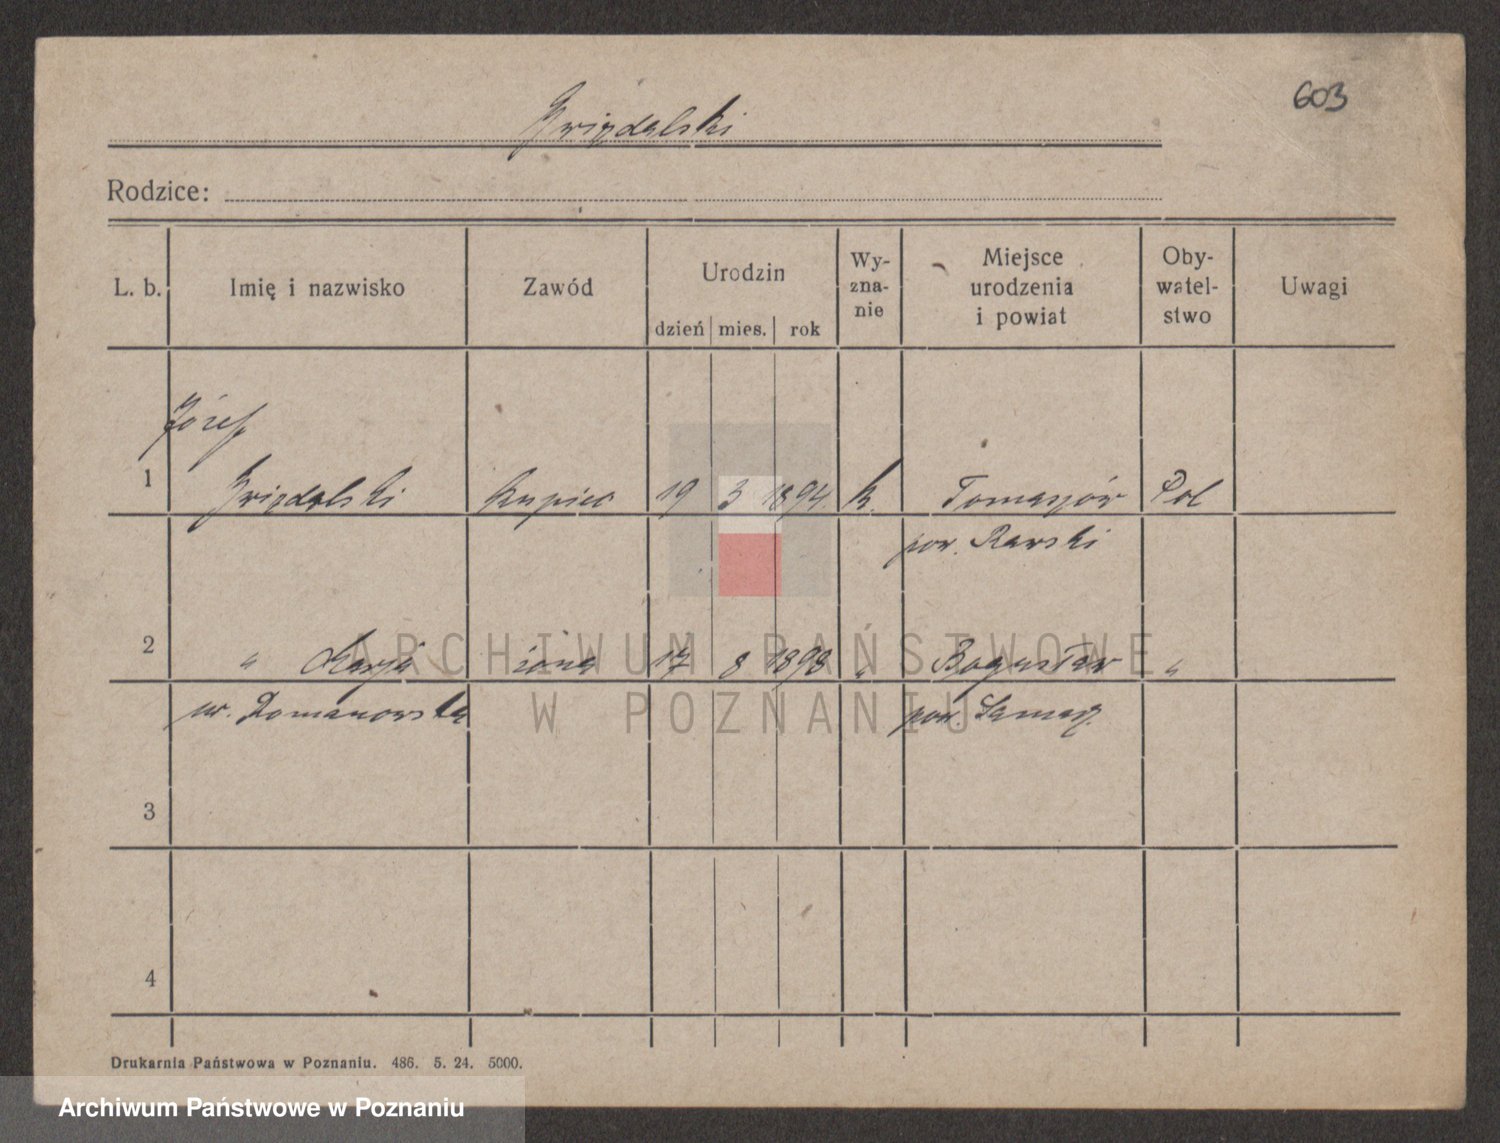 603
Gwizdalski
Rodzice:
L. b. Imię i nazwisko Zawód Urodzin dzień mies. rok Wy-zna-nie Miejsce urodzenia i powiat Oby-watel-stwo Uwagi
Józef
1 Gwizdalski kupiec 19 3 1894. k. Tomaszów Pol
pow. Rawski
2 " Marja żona 17 8 1898 " Bogusław "
ur. Romanowska pow.
3
4
Drukarnia Państwowa w Poznaniu. 486. 5. 24. 5000.
ARCHIWUM PAŃSTWOWE
W POZNANIU
Archiwum Państwowe w Poznaniu